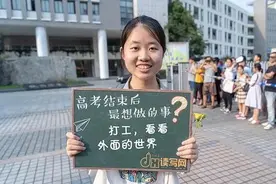 高考结束后
最想做的事?
打工,看看
外面的世界
读写网